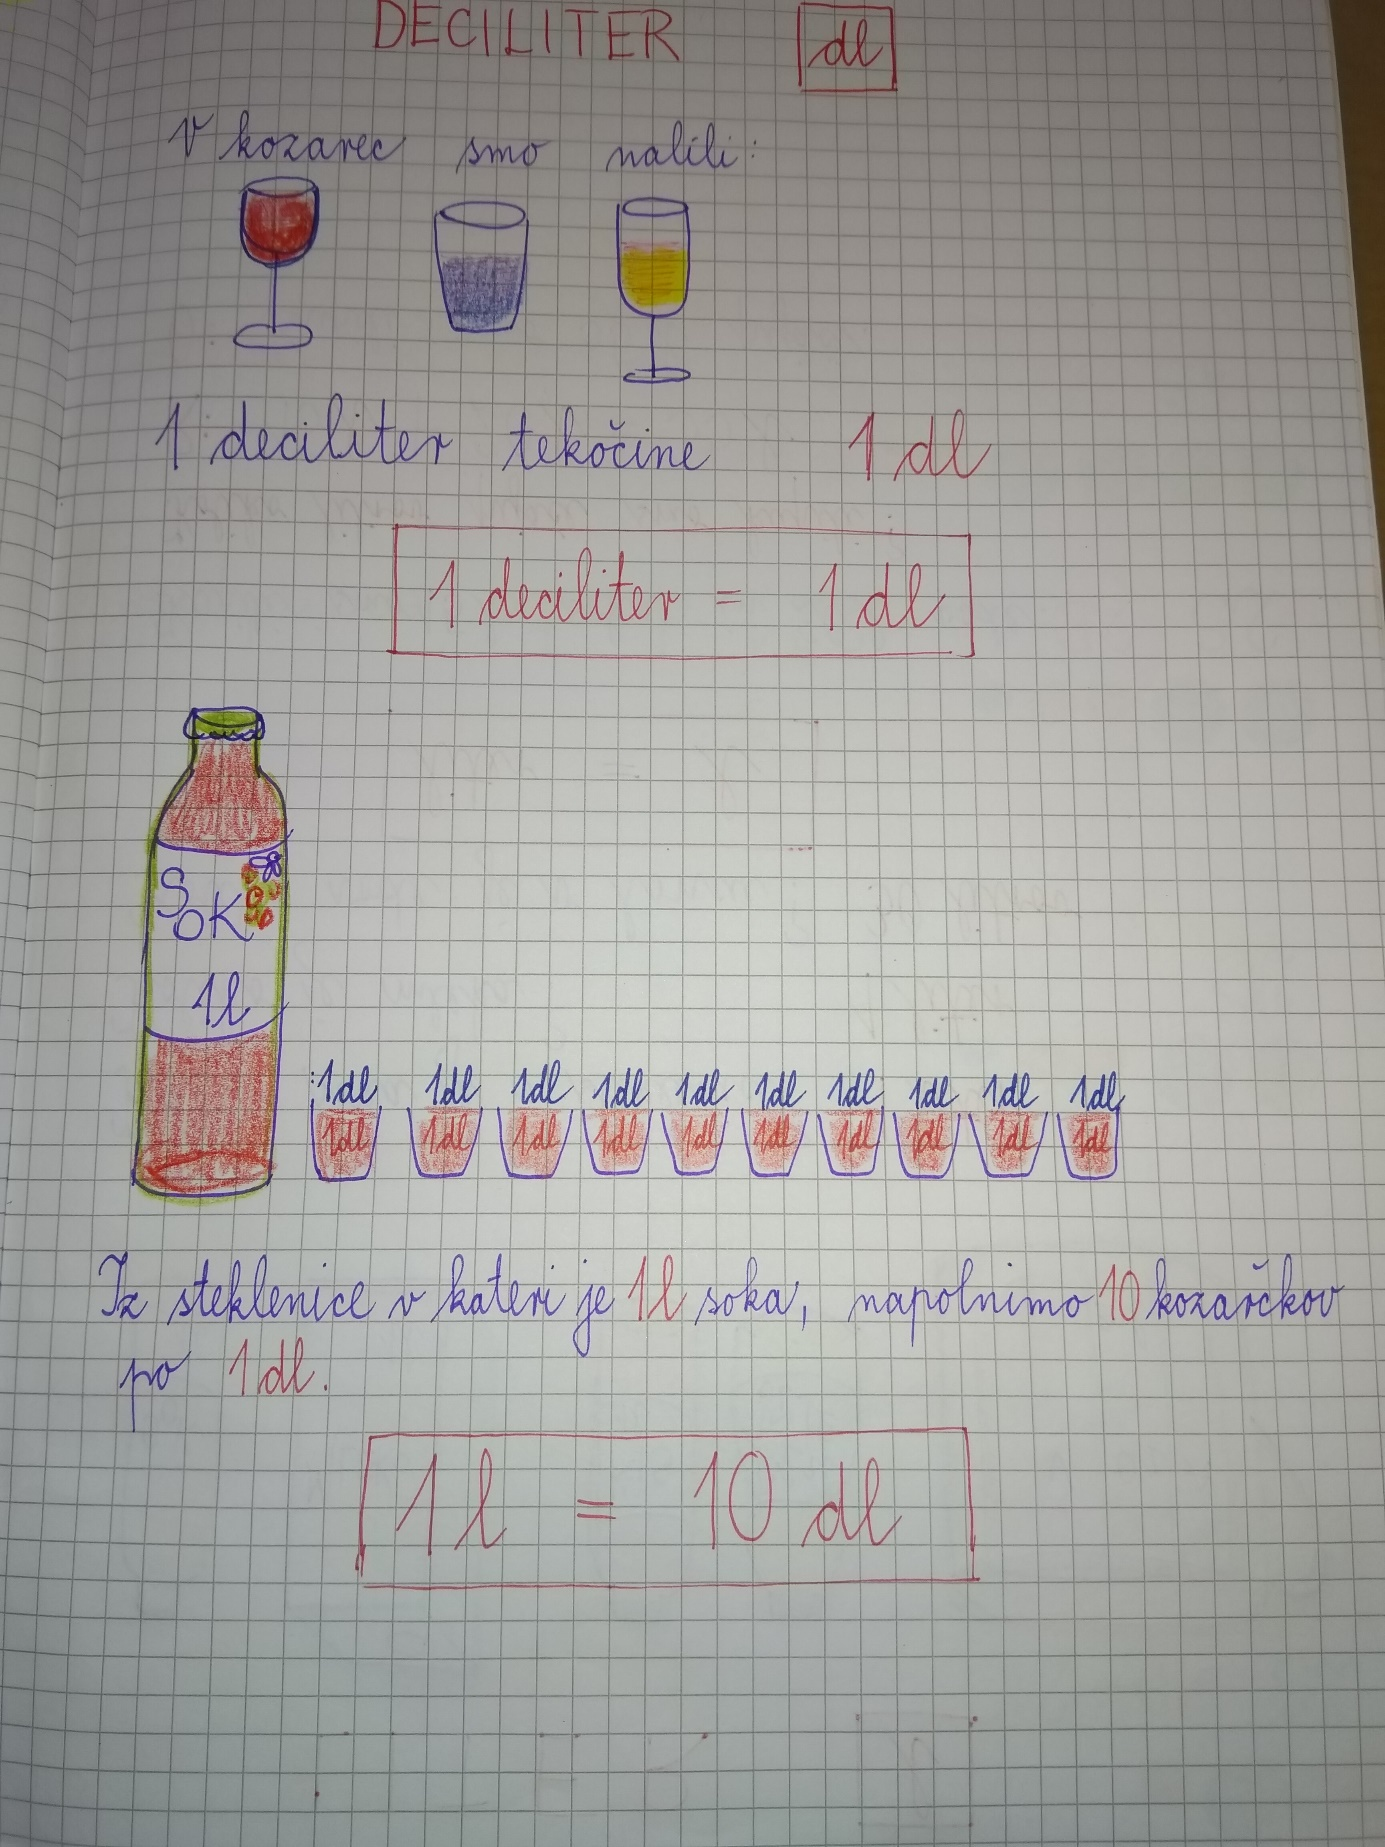 DECILITER dl
V kozarec smo nalili:
1 deciliter tekočine 1 dl
1 deciliter = 1 dl
SOK
1l
1dl 1dl 1dl 1dl 1dl 1dl 1dl 1dl 1dl 1dl
1dl 1dl 1dl 1dl 1dl 1dl 1dl 1dl 1dl 1dl
Iz steklenice v kateri je 1l soka, napolnimo 10 kozarčkov
po 1dl.
1 l = 10 dl